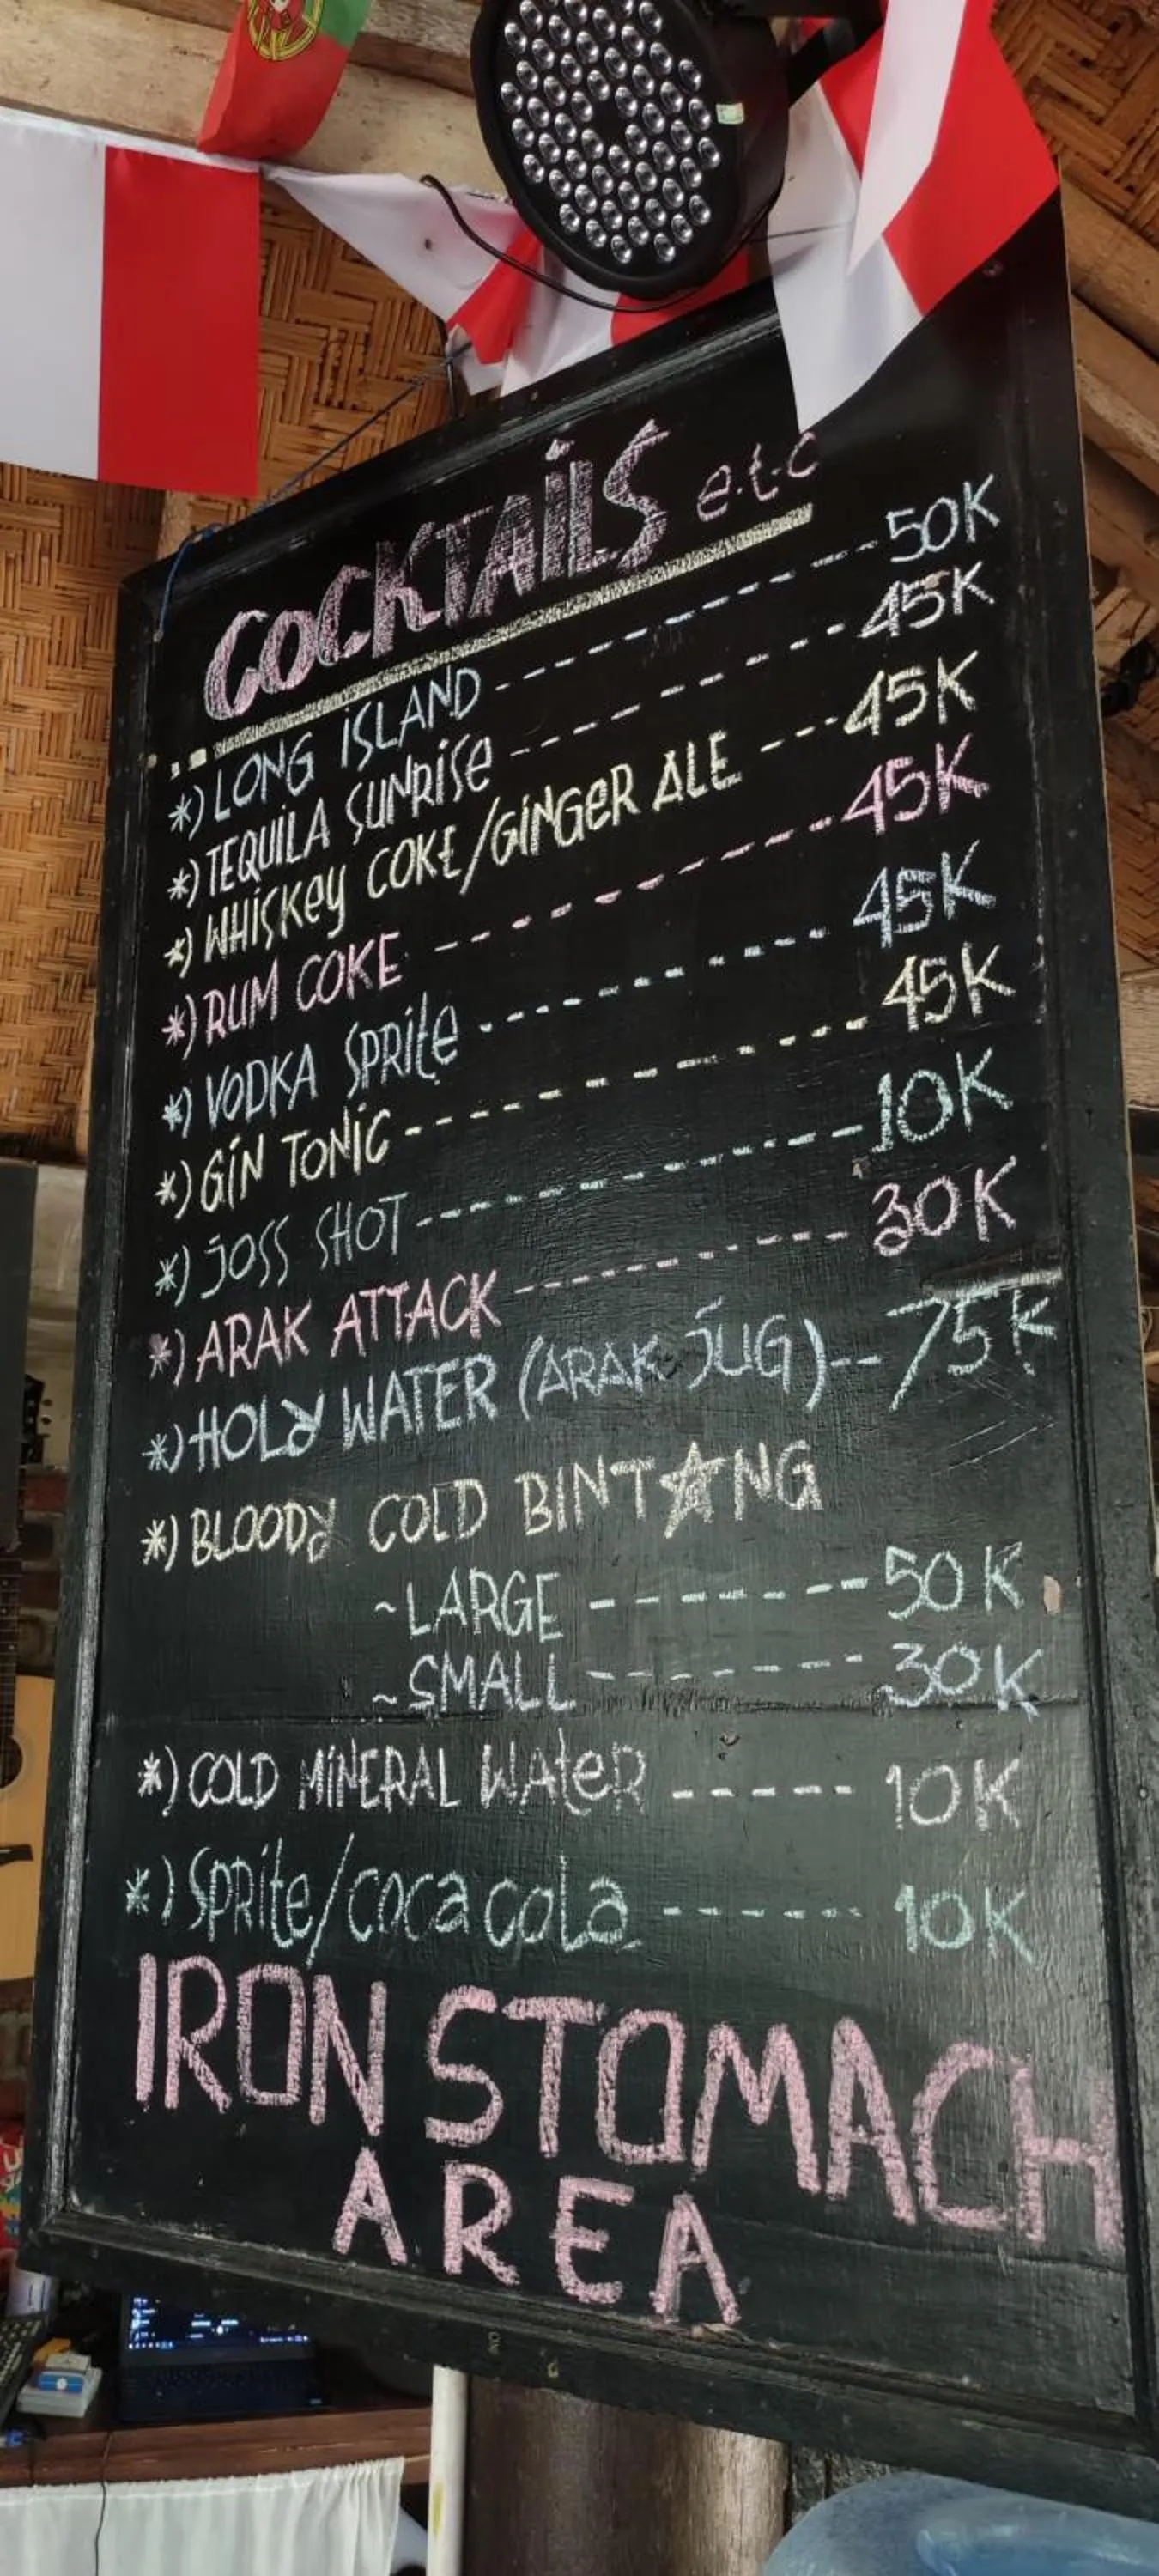 COCKTAILS e.t.c
*) LONG ISLAND ---------- 50K
*) TEQUILA SUNRISE --------- 45K
*) WHISKEY COKE/GINGER ALE --- 45K
*) RUM COKE ----------- 45K
*) VODKA SPRITE ---------- 45K
*) GIN TONIC ----------- 45K
*) JOSS SHOT ----------- 10K
*) ARAK ATTACK --------- 30K
*) HOLY WATER (ARAK JUG) -- 75K
*) BLOODY COLD BINT☆NG
~LARGE ------- 50K
~SMALL ------- 30K
*) COLD MINERAL WATER ----- 10K
*) SPRITE/COCA COLA ------ 10K
IRON STOMACH
AREA